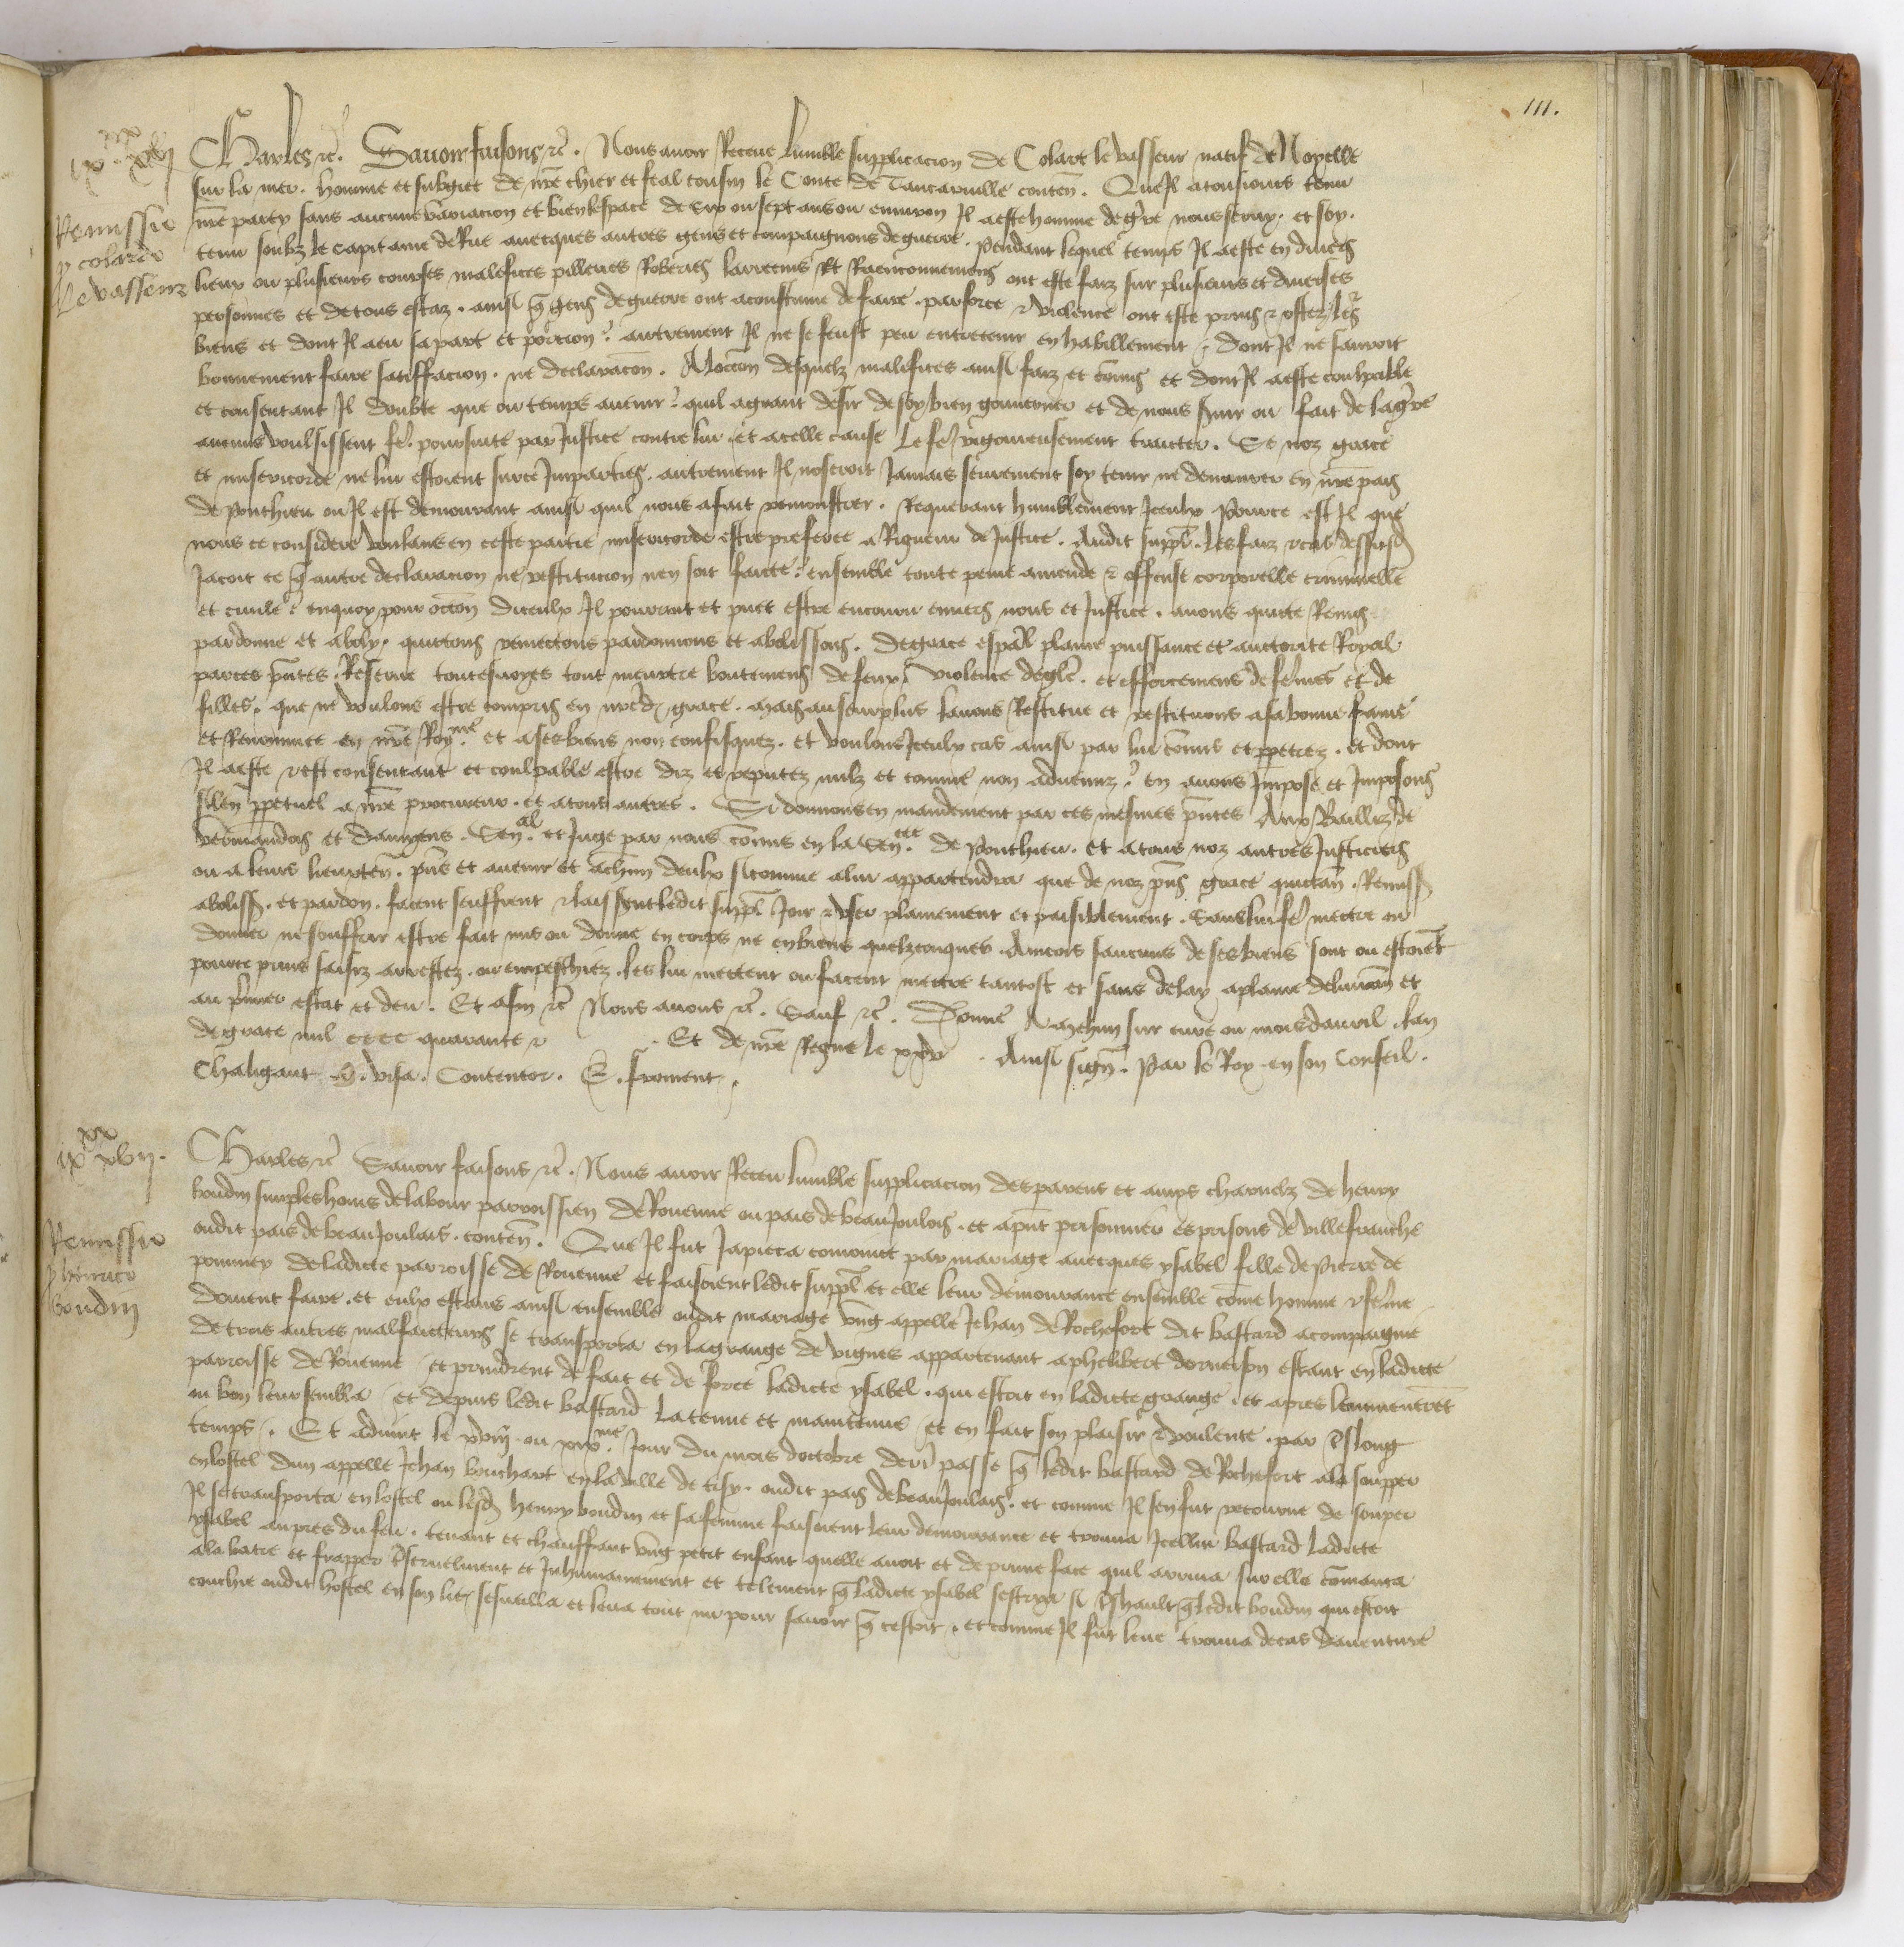 111.
ix xx xvj
Charles etc. Savoir faisons etc. Nous avoir Receue lumble supplicacion de Colart le vasseur natif de Noyelle
sur la mer. homme et subgiet de nre chier et feal cousin le Conte de Tancarville conten. Que Il a tousiours tenu
Remissio
p colardo
le vasseur
nre party sans aucune variacion et bien lespace de six ou sept ans ou environ Il a este homme de gre nous servy. et soy.
tenu soubz le capitaine de Rue avecques autres gens et compaignons de guerre. pendant lequel temps Il a este en divers
lieux ou plusieurs courses malefices pilleries Roberies larrecins Et Raenconnemens ont este faiz sur plusieurs et diverses
personnes et de tous estaz. ainsi q gens de guerre ont acoustume de faire. par force et violence ont este prins et ostez les
biens et dont Il a eu sa part et porcion. autrement Il ne se feust peu entretenir en habillement / dont Il ne sauroit
bonnement faire satiffacion. ne declaracon. A loccon desquelz malefices ainsi faiz et comis et dont Il a este coulpable
et consentant Il doubte que ou temps avenir quil a grant desir de soy bien gouverner et de nous suir ou fait de la gre
aucuns voulsissent fe poursuite par Justice contre lui et a celle cause le fe rigoureusement traicter. Se noz grace
et misericorde ne lui estoient sur ce Imparties. autrement Il noseroit Jamais seurement soy tenir ne demourer en nre pais
de Ponthieu ou Il est demourant ainsi quil nous a fait remonstrer. Requerant humblement Iceulx Pource est Il que
nous ce considere voulans en ceste partie misericorde estre preferee a Rigueur de Justice. Audit suppl. les faiz et cas dessusd
Jacoit ce q autre declaracion ne restitucion nen soit faicte. ensemble toute peine amende et offense corporelle criminelle
et civile enquoy pour occon diceulx Il pourrait et puet estre encouru envers nous et Justice. avons quicte Remis
pardonne et aboly. quictons remectons pardonnons et abolissons. De grace espal plaine puissance et auctorite Royal
par ces pntes. Reserve toutesvoyes tout meurtre boutemens de feux violence degle. et efforcemens de femes et de
filles. que ne voulons estre compris en nred grace. mais au seurplus lavons Restitue et restituons a sa bonne fame
et Renommee en nre Royme et a ses biens non confisquez. et voulons Iceulx cas ainsi par lui comis et ppetrez. et dont
Il a este et est consentant et coulpable estre diz et reputez nulz et comme non advenuz en avons Impose et Imposons
silen ppetuel a nre procureur. et a tous autres. Si donnons en mandement par ces mesmes pntes Aux Bailliz de
vermandois et damiens. Senal. et Juge par nous comis en la Sencee. de Ponthieu. et a tous noz autres Justiciers
ou a leurs lieuxten. pns et avenir et a chun deulx sicomme a lui appartendra que de noz pns grace quictan. Remiss
aboliss. et pardon. facent seuffrent et laissent ledit suppl Joir et user plainement et paisiblement. Sans lui fe mettre ou
donner ne souffrir estre fait mis ou donne en corps ne en biens quelzconques. Aincois saucuns de ses biens sont ou estoient
pource prins saisiz arrestez. ou empeschiez. les lui mettent ou facent mettre tantost et sans delay a plaine delivran et
au pmier estat et deu. Et afin etc Nous avons etc. Sauf etc. Donne A mehun sur evre ou mois davril. lan
de grace mil cccc quarante et . Et de nre Regne le xxv . Ainsi sign. Par le Roy en son Conseil.
Chaligant. visa. Contentor. E. froment.
ix xx xvij.
Charles etc Savoir faisons etc. Nous avoir Receu lumble supplicacion des parens et amys charnelz de henry
boudin simples homs de labour parroissien de Rouenne ou pais de beauJoulois. et apnt prisonnier es prisons de villefranche
Remissio
p henrico
boudin
oudit pais de beauJoulais. conten. Que Il fut Ja pieca comoinct par mariage avecques ysabel fille de Pierre de
pommey de ladicte parroisse de Rouenne et faisoient ledit suppl et elle leur demourance ensemble come homme et feme
doivent faire. et eulx estans ainsi ensemble oudit mariage ung appelle Jehan de Rochefort dit bastard acompaigne
de trois autres malfaicteurs se transporta en la grange de vignes appartenant a phelibert dorneison estant en ladicte
parroisse de Rouenne et prindrent de fait et de force ladicte ysabel. qui estoit en ladicte grange. et apres lenmenerent
ou bon leur sembla et depuis ledit bastard la tenue et maintenue et en fait son plaisir et voulente. par long
temps. Et advint le xviij ou xixme Jour du mois doctobre deri passe q ledit bastard de Rochefort ala soupper
en lostel dun appelle Jehan bouchart en la ville de tisy. oudit pais de beauJoulais. et comme Il sen fut retourne de souper
Il se transporta en lostel ou lesd henry boudin et sa femme faisoient leur demourance et trouva Icellui bastard ladicte
ysabel aupres du feu. tenant et chauffant ung petit enfant quelle avoit et de prime face quil arriva sur elle comanca
a la batre et frapper tscruelment et Inhumainement et telement q ladicte ysabel sescrya si tshault q ledit boudin qui estoit
couchie oudit hostel en son lit sesveilla et leva tout nu pour savoir q cestoit. et comme Il fut leve trouva de cas daventure